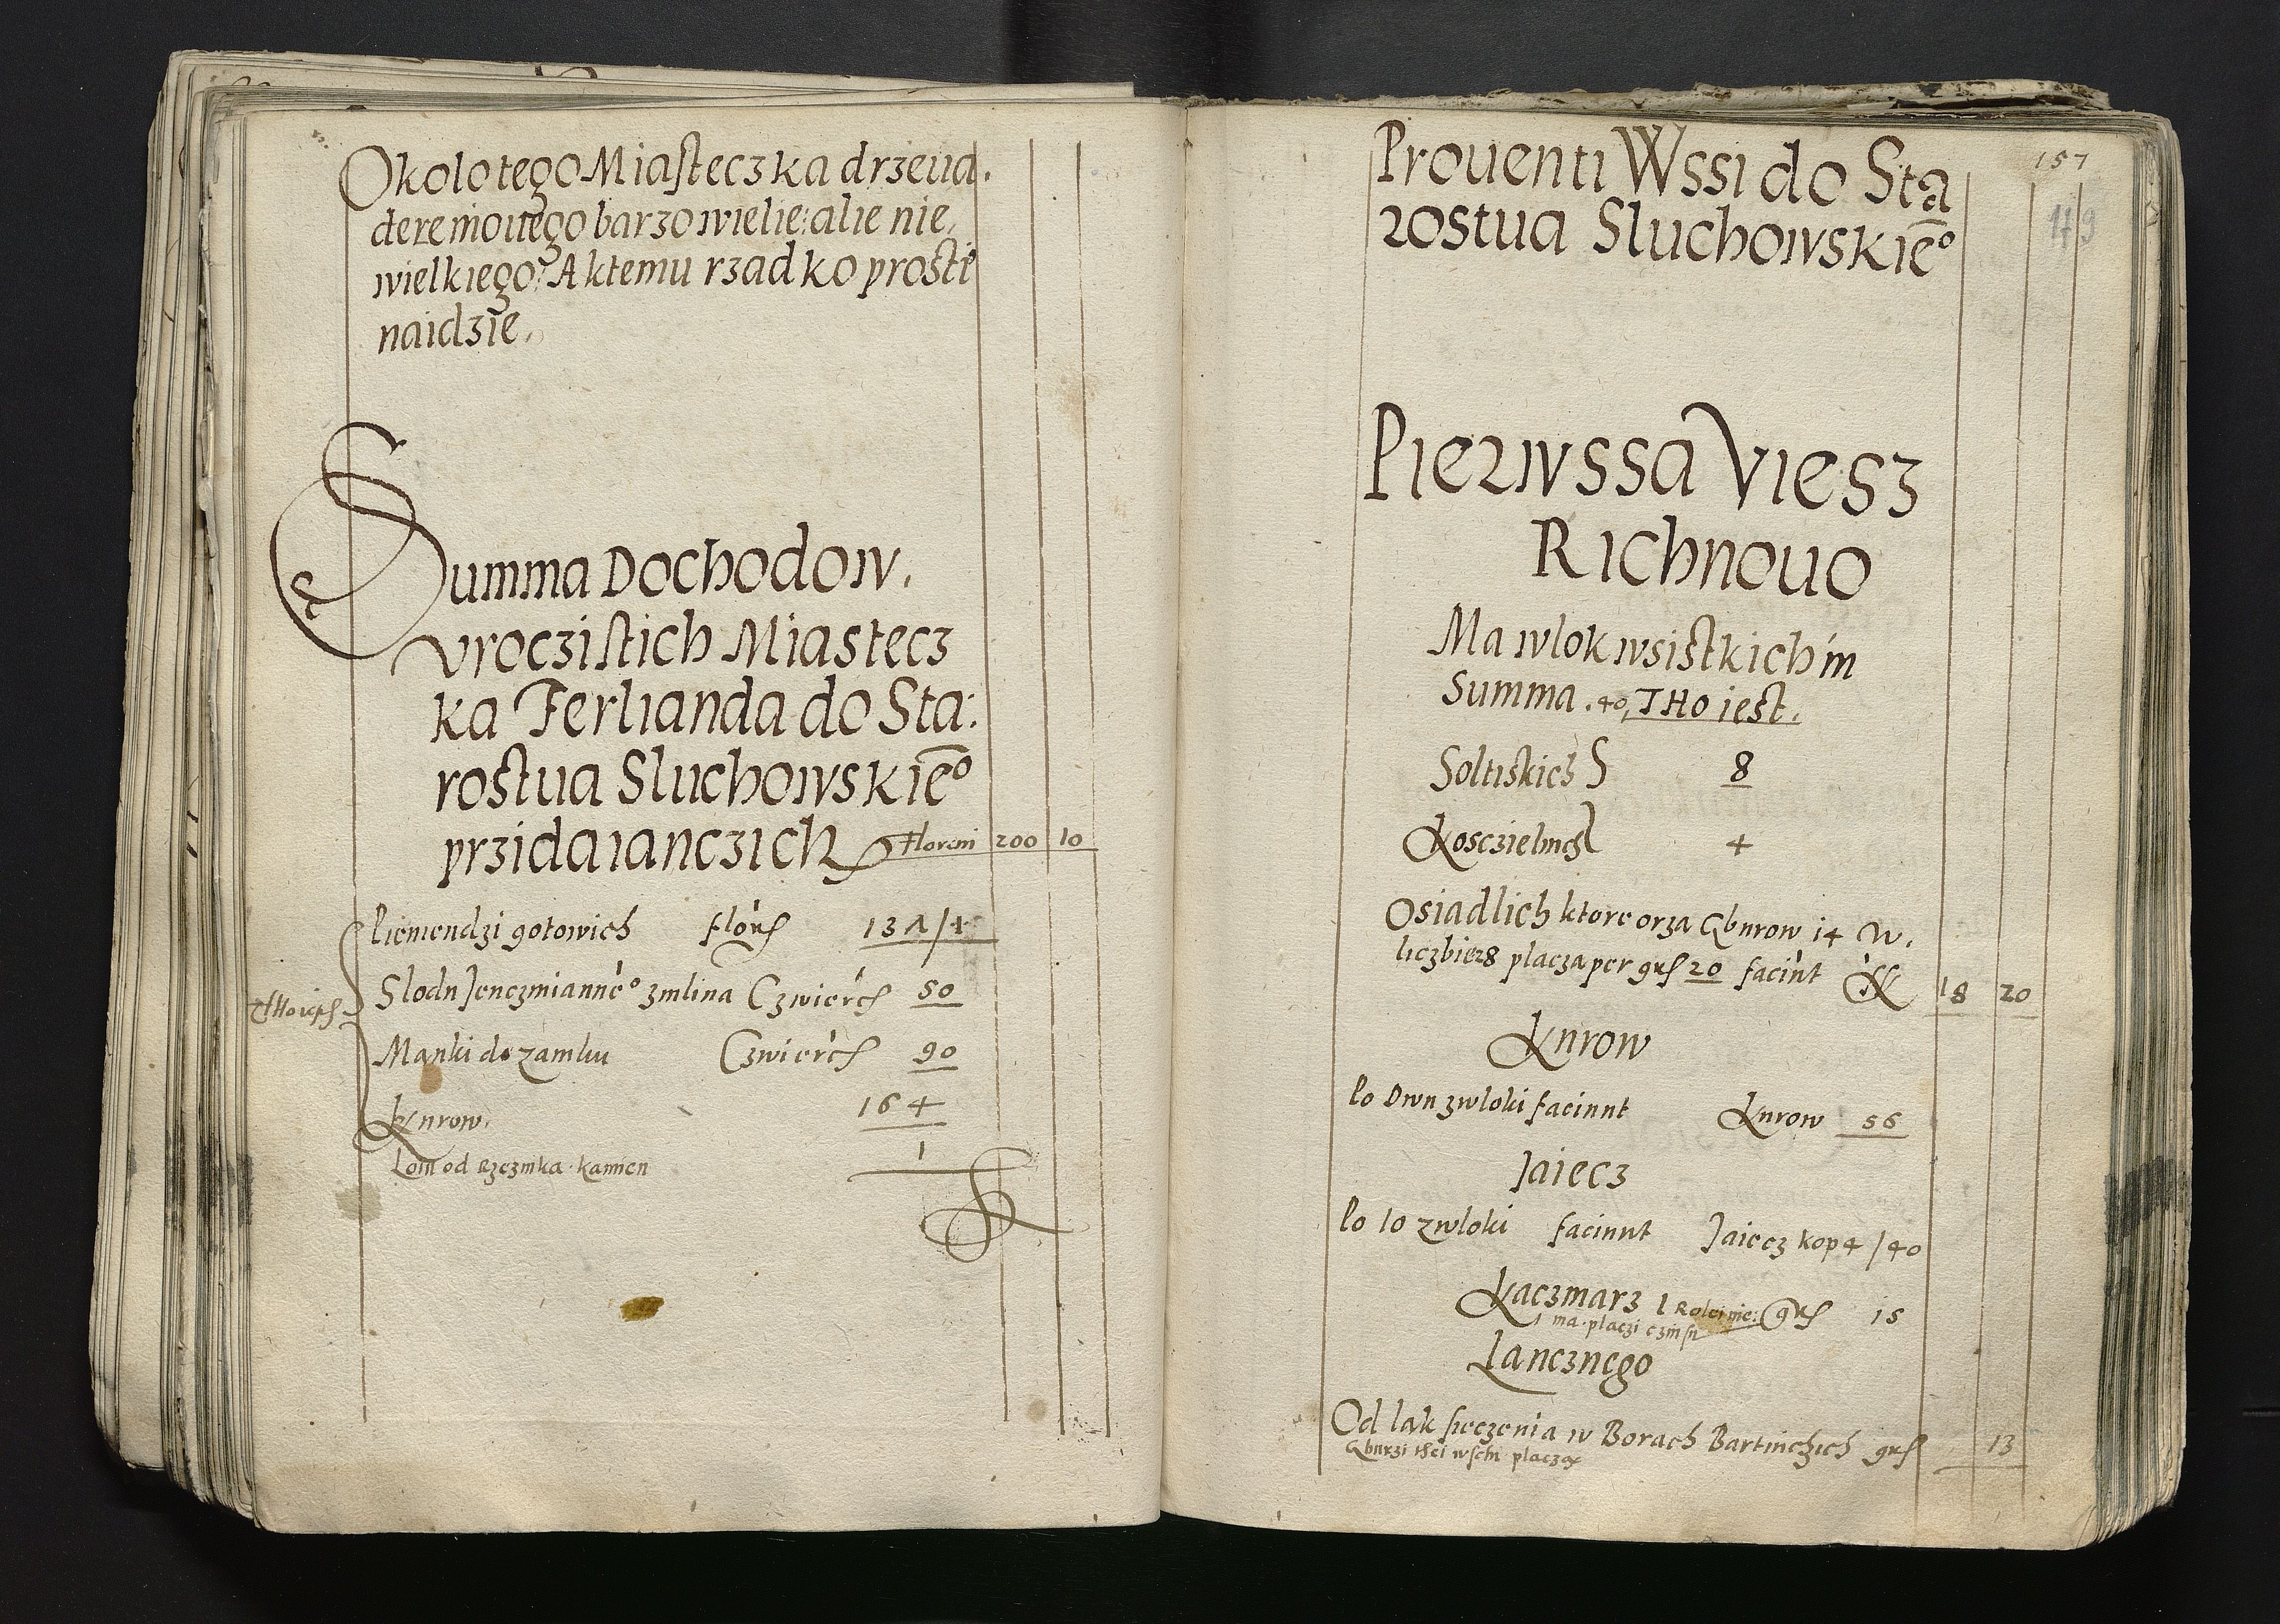 Okolo tego Miasteczka drzeua.
deremouego barzo wielie: alie nie,
wielkiego: A ktemu rzadko prosti
naidzie.
Summa Dochodow.
vroczistich Miastecz
ka Ferlianda do Sta:
rostua Sluchowskie̅o
przidaianczich Floreni 200 10
Pienendzi gotowich flor 131/4
Slodu Jenczmianne̊o zmlina Czwierc 50
Manki do zamku Czwierc 90
Kurow. 164
Loiu od Rzeznika kamien 1
157
Prouenti Wssi do Sta
rostua Sluchowskie̅o
Pierwssa Viesz
Richnouo
Ma wlok wsistkich in
Summa .40, THo iest.
Soltiskich 8
Koscielnich 4
Osiadlich ktore orza Gburow 14 W.
liczbie 28 placza per grs 20 faciunt 18 20
Kurow
Po Dwu zwloki faciunt Kurow 56
Jaiecz
Po 10 zwloki faciunt Jaiecz kop 4/40
Kaczmarz 1 Rolei nie: grs 15
ma. placzi czinsu
Lancznego
Od lak sieczenia w Borach Bartinczich grs 13
Gburzi thei wschi placza